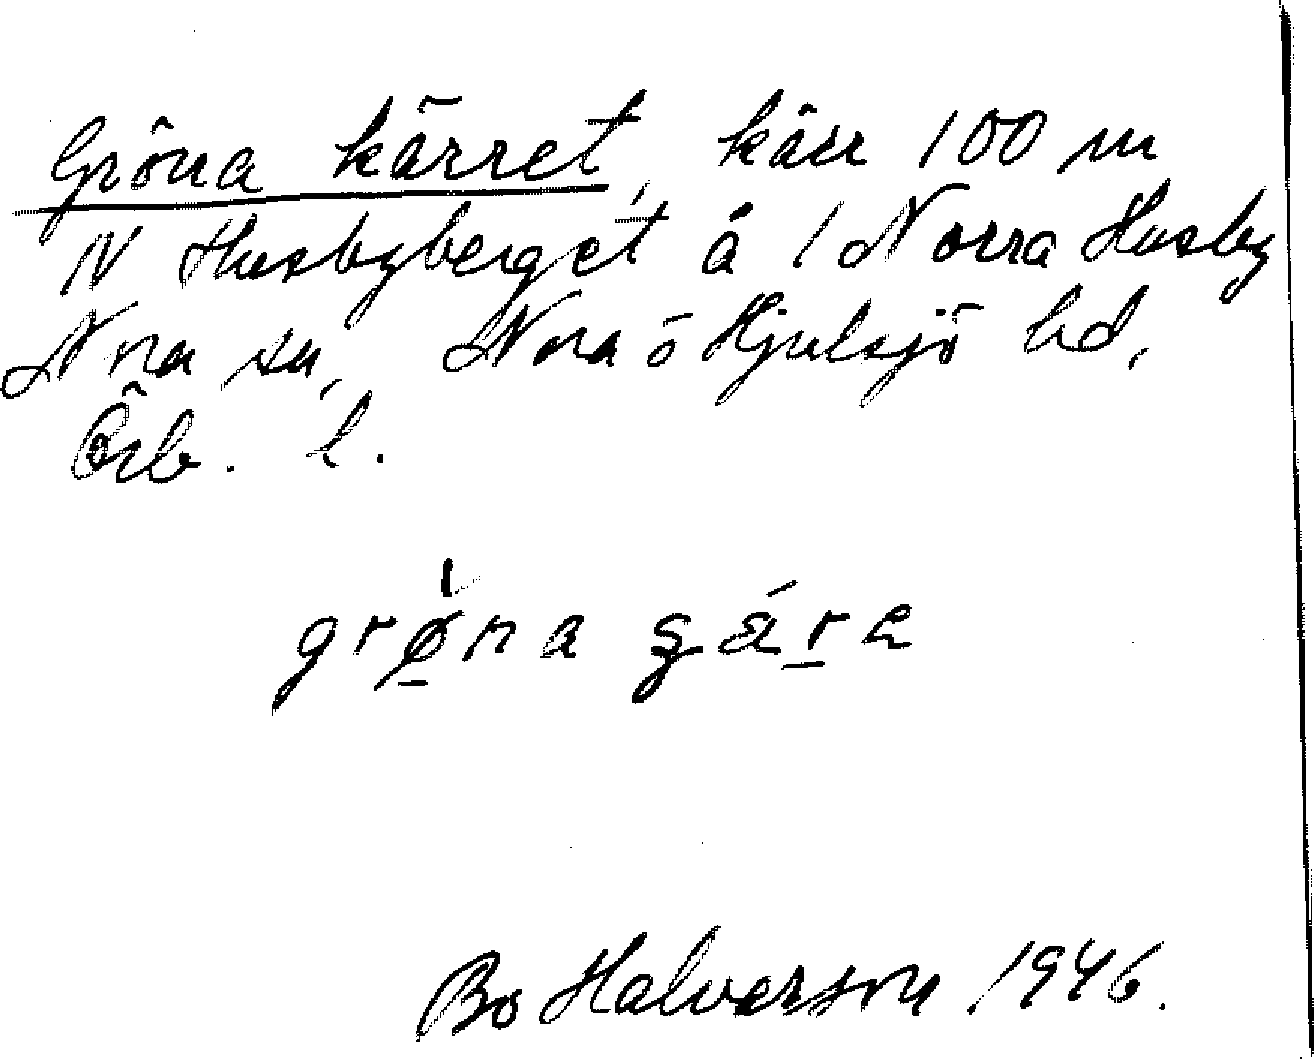 Gröna kärret, kärr 100 m
N Husbyberget å 1 Norra Husby
Nora sn, Nora o Hjulsjö hd,
Örb. l.
grø̱̀na ʂáṟe
Bo Halvarson 1946.